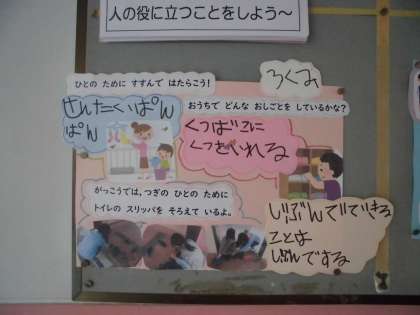 人の役に立つことをしよう～
ひとの ために すすんで はたらこう!
ろくみ
せんたくいぱん
ぱん
おうちで どんな おしごとを しているかな?
くつばこに
くつをいれる
がっこうでは,つぎの ひとの ために
トイレの スリッパを そろえて いるよ。
じぶんでできる
ことは
じぶんでする